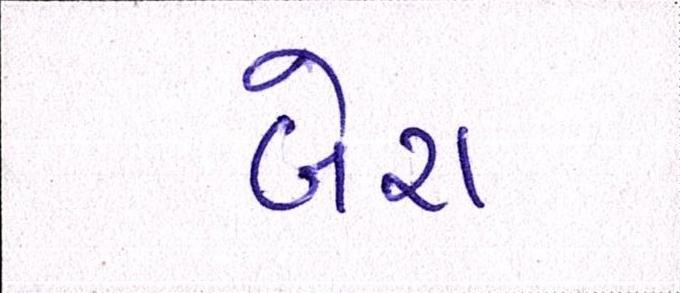 બેરા